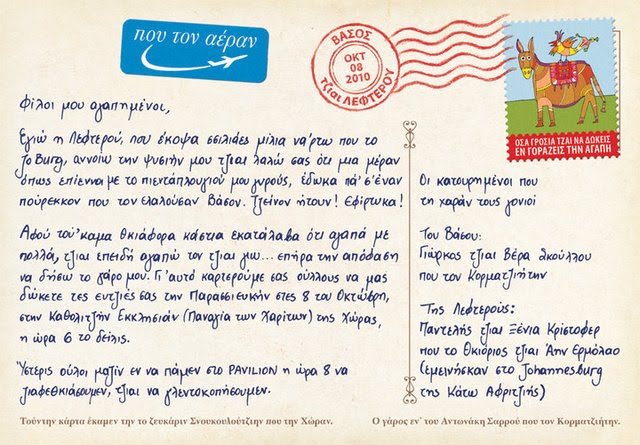 που τον αέραν
ΒΑΣΟΣ
ΟΚΤ
08
2010
τζιαι ΛΕΦΤΕΡΟΥ
ΟΣΑ ΓΡΟΣΙΑ ΤΖΑΙ ΝΑ ΔΩΚΕΙΣ
ΕΝ ΓΟΡΑΖΕΙΣ ΤΗΝ ΑΓΑΠΗ
Φίλοι μου αγαπημένοι,
Εγιώ η Λεφτερού, που έκοψα σσιλιάες μίλια νάρτω που το
Jo'Burg, αννοίω την ψυσιήν μου τζιαι λαλώ σας ότι μια μέραν
όπως επίεννα με το πιεντάπλουγιού μου γυρούς, έδωκα πά' σ' έναν
πούρεκκον που τον ελαλούσαν Βάσον. Τζείνον ήτουν! Εφίρτικα!
Αφού τού'καμα θκιάφορα κάστια εκατάλαβα ότι αγαπά με
πολλά, τζιαι επειδή αγαπώ τον τζιαι γιω... επήρα την απόφαση
να δήσω το γάρο μου. Γι' αυτό καρτερούμε σας ούλλους να μας
δώκετε τες ευτζιές σας την Παρασσιευκήν στες 8 του Οκτώβρη,
στην Καθολιτζήν Εκκλησιάν (Παναγία των Χαρίτων) της Χώρας,
η ώρα 6 το δείλις.
Ύστερις ούλοι μαζίν εν να πάμεν στο PAVILION η ώρα 8 να
γιαφεθκιάσουμεν, τζιαι να γλεντοκοπήσουμεν.
Οι κατουρημένοι που
τη χαράν τους γονιοί
Του Βάσου:
Γιώρκος τζιαι Βέρα Σκούλλου
που τον Κορματζιήτην
Της Λεφτερούς:
Παντελής τζιαι Ξένια Κρίστοφερ
που το Θκιόριος τζιαι Άην Ερμόλαο
(εμεινήσκαν στο Johannesburg
της Κάτω Αφριτζιής)
Τούντην κάρτα έκαμεν την το ζευκάριν Σνουκουλούτζιην που την Χώραν.
Ο γάρος εν' του Αντωνάκη Σαρρού που τον Κορματζιήτην.